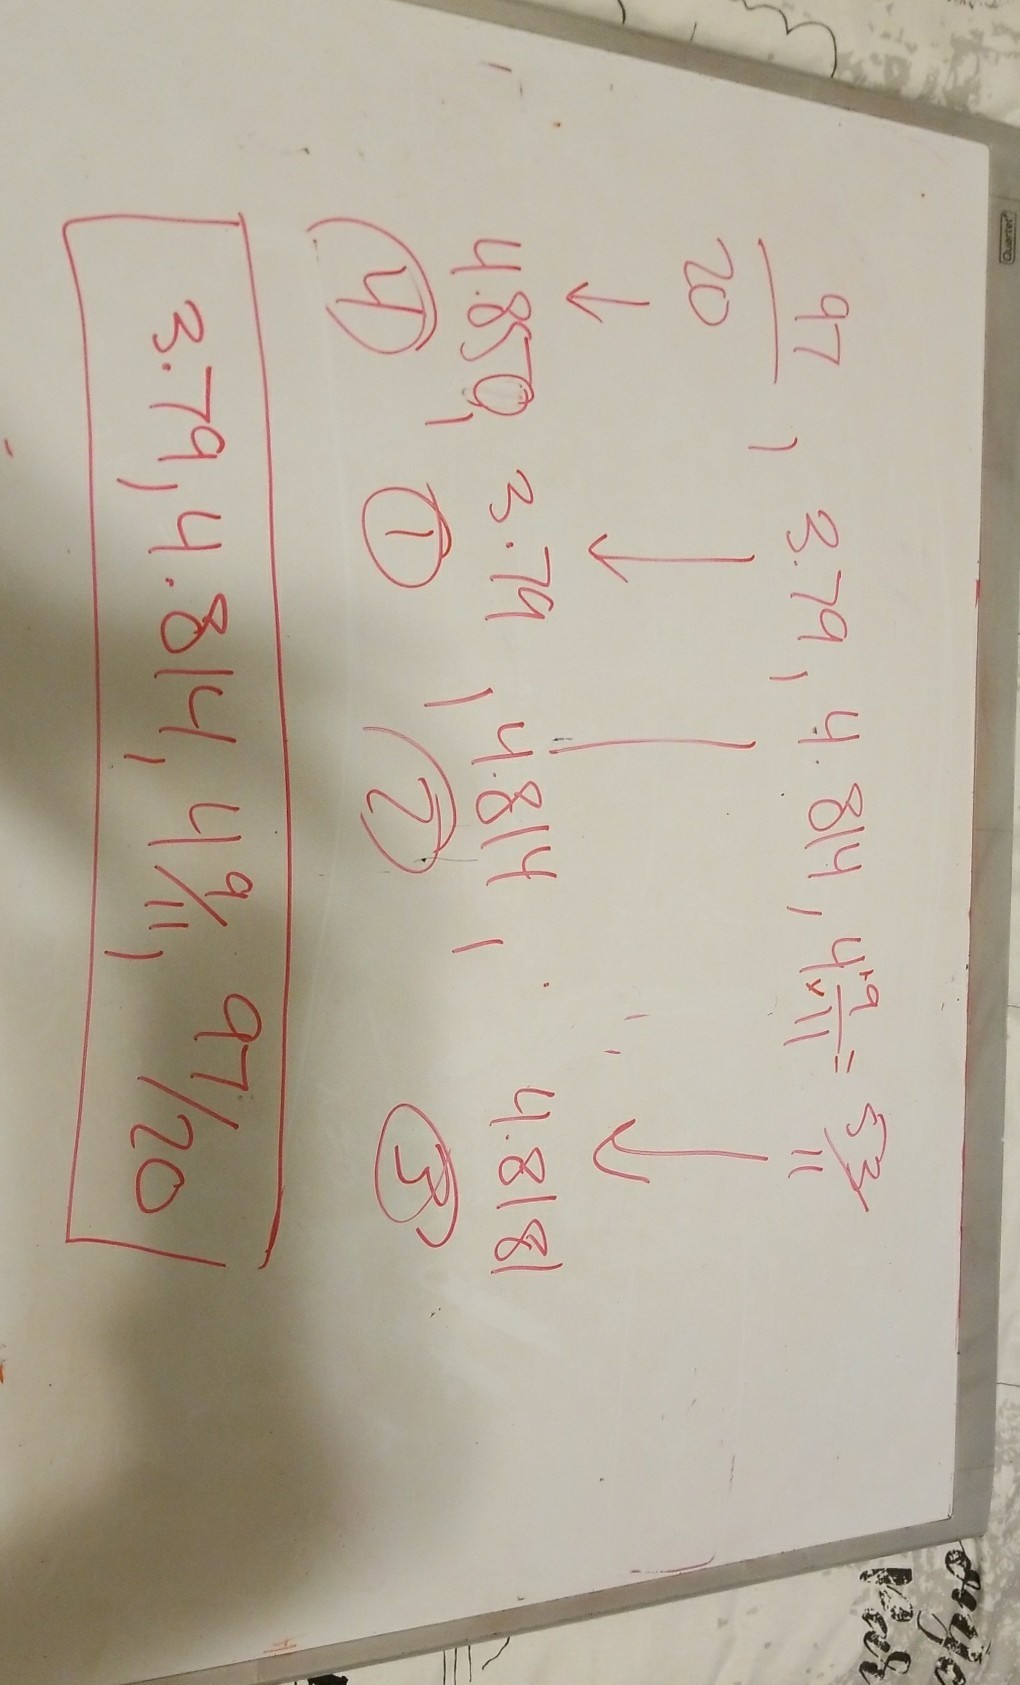 Quartet
97/20 , 3.79 , 4.814 , 4 9/11 = 53/11
4.850, 3.79 , 4.814 , 4.8181
4 1 2 3
3.79, 4.814, 4 9/11, 97/20